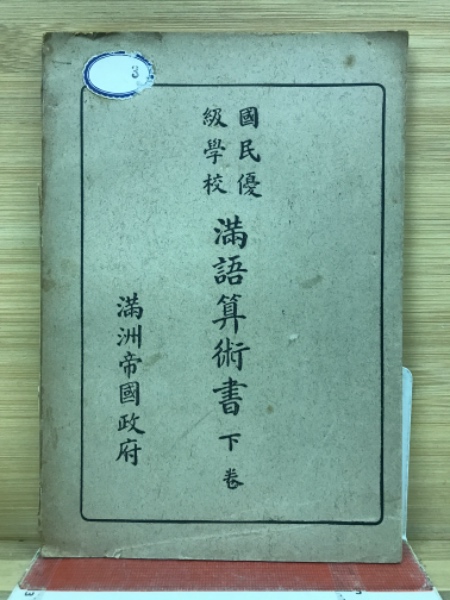 國民優
級學校
滿語算術書 下卷
滿洲帝國政府
3